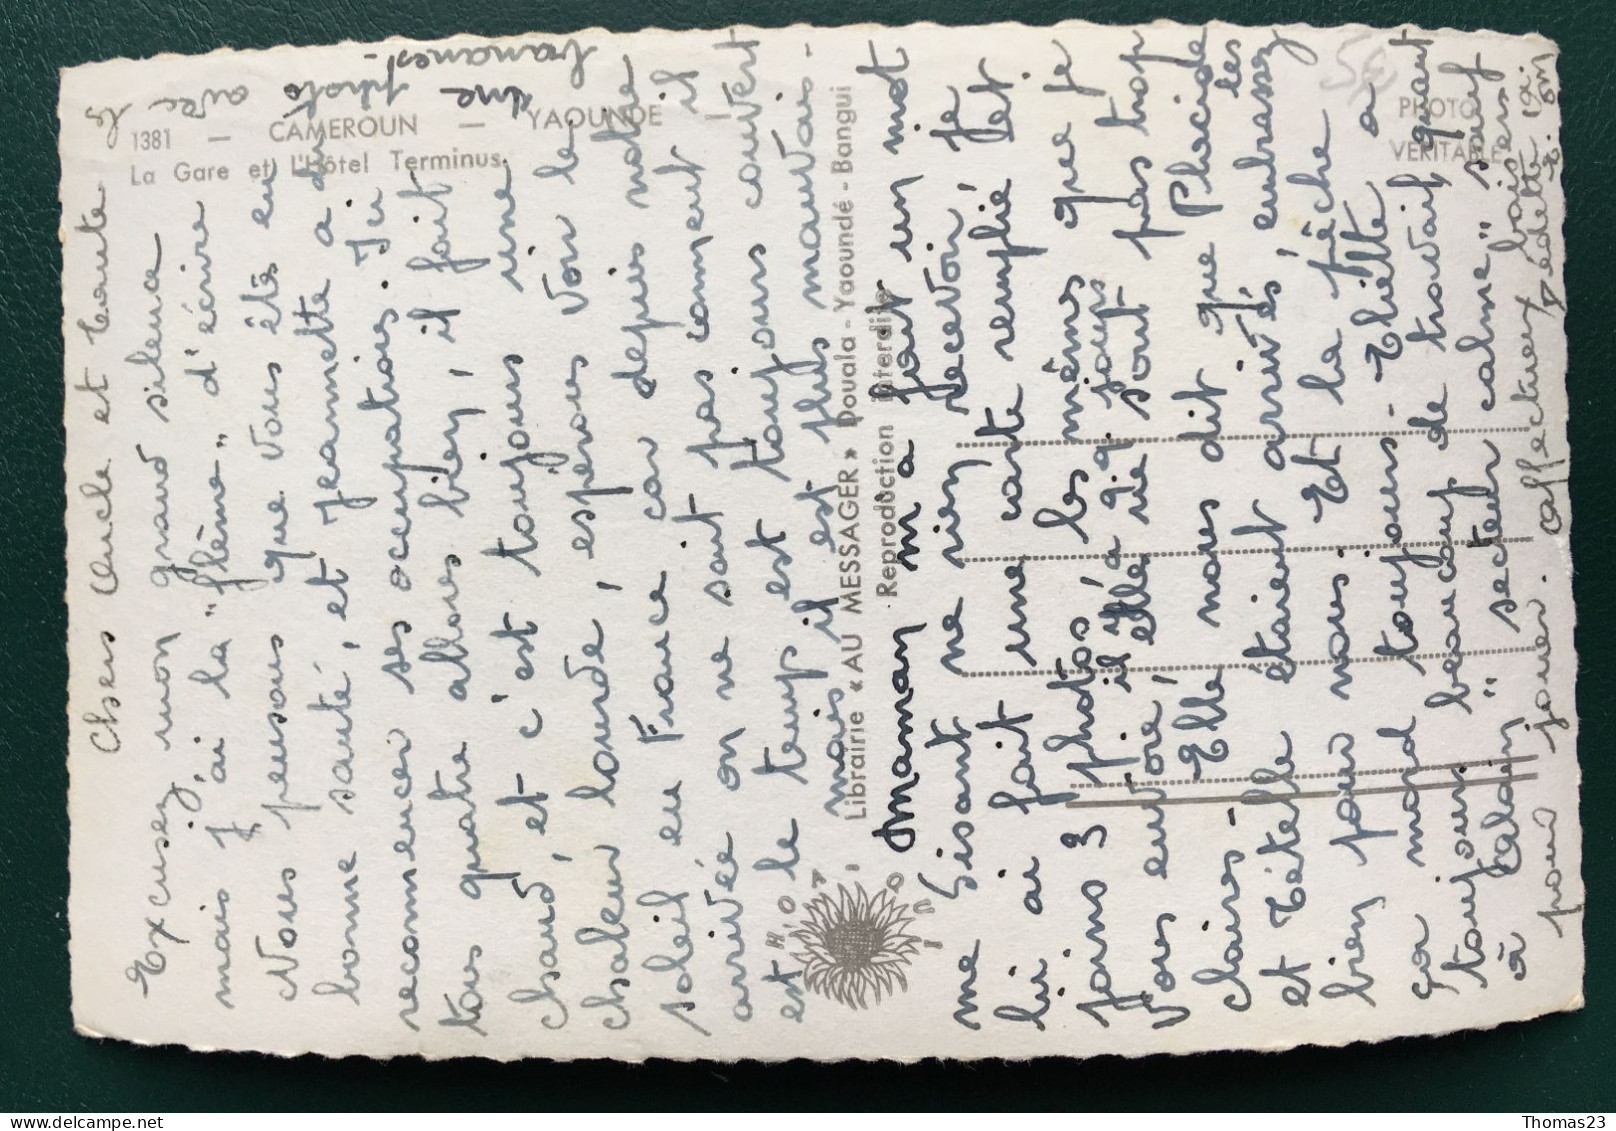 1381 — CAMEROUN — YAOUNDÉ
La Gare et l'Hôtel Terminus.
PHOTO
VERITABLE
Librairie « AU MESSAGER » Douala - Yaoundé - Bangui
Reproduction interdite
Chers Oncle et Tante
Excusez mon grand silence
mais j'ai la "flème" d'écrire
Nous pensons que vous êtes en
bonne santé, et Jeannette a dû
recommencer ses occupations. Ici
tous quatre allons bien, il fait
chaud, et c'est toujours une
chaleur lourde, espérons voir le
soleil en France car depuis notre
arrivée on ne sait pas comment il
est le temps est toujours couvert
mais il est plus mauvais -
Maman m'a fait un mot
me disant ne rien recevoir, je
lui ai fait une carte remplie et
joins 3 photos, les mêmes que je
vous envoie, il y a q.q. jours
j'espère qu'elle ne sont pas trop
claires - Elle nous dit que Placide
et Tételle étaient arrivés, embrassez les
bien pour nous. Et la pêche
ça mord toujours - Eliette a
toujours beaucoup de travail, quant
à Alain "secteur calme" sauf
pour jouer. Affectueux baisers
Dédette
une photo avec
bananes.
Thomas23